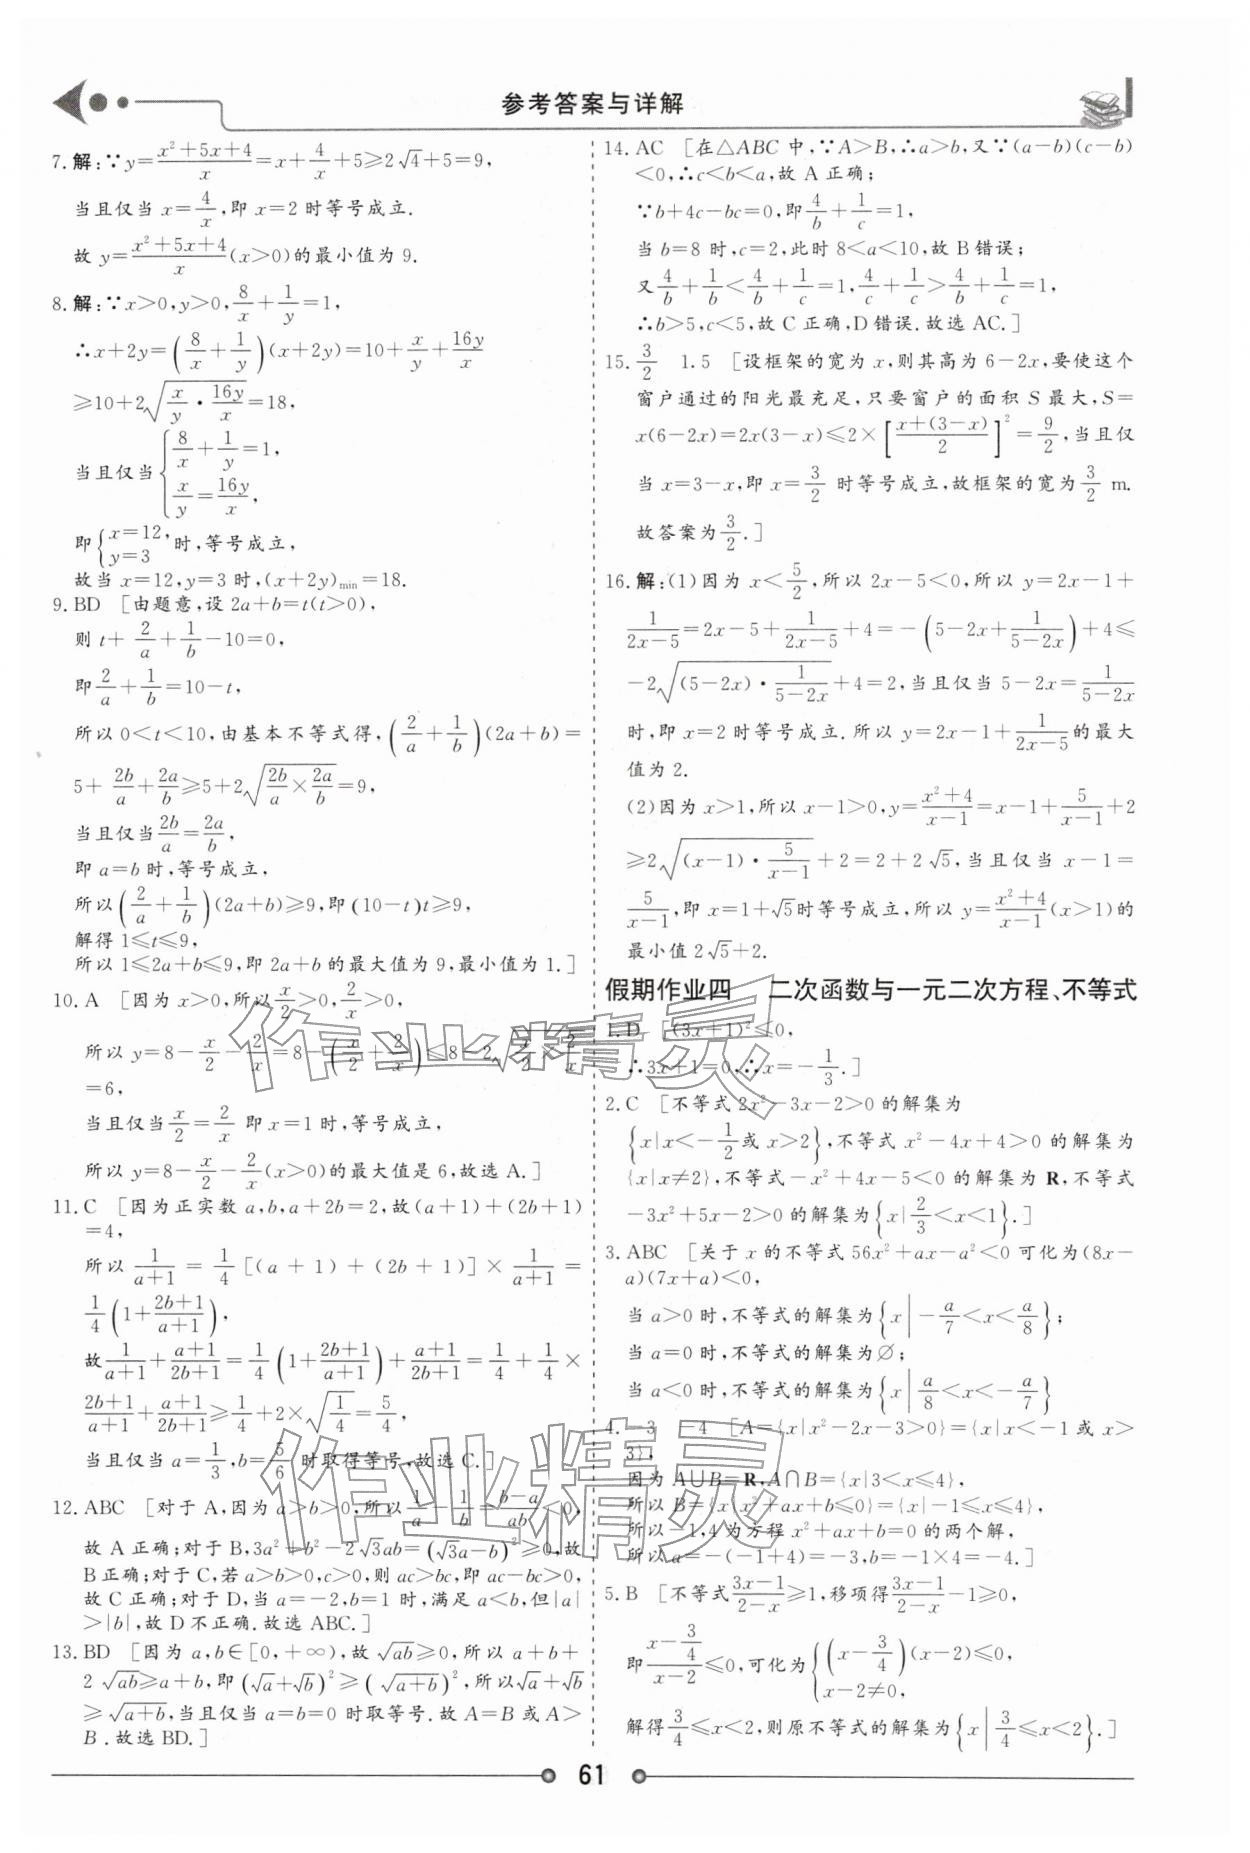 参考答案与详解
7. 解:∵y=(x²+5x+4)/x=x+4/x+5≥2√4+5=9,
当且仅当 x=4/x,即 x=2 时等号成立.
故 y=(x²+5x+4)/x(x>0)的最小值为 9.
8. 解:∵x>0,y>0,8/x+1/y=1,
∴x+2y=(8/x+1/y)(x+2y)=10+x/y+16y/x
≥10+2√(x/y·16y/x)=18,
当且仅当{8/x+1/y=1, x/y=16y/x,
即{x=12, y=3 时,等号成立,
故当 x=12,y=3 时,(x+2y)min=18.
9. BD [由题意,设 2a+b=t(t>0),
则 t+2/a+1/b-10=0,
即2/a+1/b=10-t,
所以 0<t<10,由基本不等式得,(2/a+1/b)(2a+b)=
5+2b/a+2a/b≥5+2√(2b/a×2a/b)=9,
当且仅当2b/a=2a/b,
即 a=b 时,等号成立,
所以(2/a+1/b)(2a+b)≥9,即(10-t)t≥9,
解得 1≤t≤9,
所以 1≤2a+b≤9,即 2a+b 的最大值为 9,最小值为 1.]
10. A [因为 x>0,所以x/2>0,2/x>0,
所以 y=8-x/2-2/x=8-(x/2+2/x)≤8-2√(x/2·2/x)
=6,
当且仅当x/2=2/x 即 x=1 时,等号成立,
所以 y=8-x/2-2/x(x>0)的最大值是 6,故选 A.]
11. C [因为正实数 a,b,a+2b=2,故(a+1)+(2b+1)
=4,
所以 1/(a+1)=1/4[(a+1)+(2b+1)]×1/(a+1)=
1/4(1+(2b+1)/(a+1)),
故1/(a+1)+(a+1)/(2b+1)=1/4(1+(2b+1)/(a+1))+(a+1)/(2b+1)=1/4+1/4×
(2b+1)/(a+1)+(a+1)/(2b+1)≥1/4+2×√(1/4)=5/4,
当且仅当 a=1/3,b=5/6时取得等号,故选 C.]
12. ABC [对于 A,因为 a>b>0,所以1/a-1/b=(b-a)/ab<0,
故 A 正确;对于 B,3a²+b²-2√3ab=(√3a-b)²≥0,故
B 正确;对于 C,若 a>b>0,c>0,则 ac>bc,即 ac-bc>0,
故 C 正确;对于 D,当 a=-2,b=1 时,满足 a<b,但|a|
>|b|,故 D 不正确.故选 ABC.]
13. BD [因为 a,b∈[0,+∞),故√ab≥0,所以 a+b+
2√ab≥a+b,即(√a+√b)²≥(√(a+b))²,所以√a+√b
≥√(a+b),当且仅当 a=b=0 时取等号.故 A=B 或 A>
B.故选 BD.]
14. AC [在△ABC 中,∵A>B,∴a>b,又∵(a-b)(c-b)
<0,∴c<b<a,故 A 正确;
∵b+4c-bc=0,即4/b+1/c=1,
当 b=8 时,c=2,此时 8<a<10,故 B 错误;
又4/b+1/b<4/b+1/c=1,4/c+1/c>4/b+1/c=1,
∴b>5,c<5,故 C 正确,D 错误.故选 AC.]
15. 3/2 1.5 [设框架的宽为 x,则其高为 6-2x,要使这个
窗户通过的阳光最充足,只要窗户的面积 S 最大,S=
x(6-2x)=2x(3-x)≤2×[(x+(3-x))/2]²=9/2,当且仅
当 x=3-x,即 x=3/2 时等号成立,故框架的宽为3/2 m.
故答案为3/2.]
16. 解:(1)因为 x<5/2,所以 2x-5<0,所以 y=2x-1+
1/(2x-5)=2x-5+1/(2x-5)+4=-(5-2x+1/(5-2x))+4≤
-2√((5-2x)·1/(5-2x))+4=2,当且仅当 5-2x=1/(5-2x)
时,即 x=2 时等号成立.所以 y=2x-1+1/(2x-5)的最大
值为 2.
(2)因为 x>1,所以 x-1>0,y=(x²+4)/(x-1)=x-1+5/(x-1)+2
≥2√((x-1)·5/(x-1))+2=2+2√5,当且仅当 x-1=
5/(x-1),即 x=1+√5时等号成立,所以 y=(x²+4)/(x-1)(x>1)的
最小值 2√5+2.
假期作业四 二次函数与一元二次方程、不等式
1. D [(3x+1)²≤0,
∴3x+1=0,∴x=-1/3.]
2. C [不等式 2x²-3x-2>0 的解集为
{x|x<-1/2或 x>2},不等式 x²-4x+4>0 的解集为
{x|x≠2},不等式-x²+4x-5<0 的解集为 R,不等式
-3x²+5x-2>0 的解集为{x|2/3<x<1}.]
3. ABC [关于 x 的不等式 56x²+ax-a²<0 可化为(8x-
a)(7x+a)<0,
当 a>0 时,不等式的解集为{x|-a/7<x<a/8};
当 a=0 时,不等式的解集为∅;
当 a<0 时,不等式的解集为{x|a/8<x<-a/7}
4. -3 -4 [A={x|x²-2x-3>0}={x|x<-1 或 x>
3},
因为 A∪B=R,A∩B={x|3<x≤4},
所以 B={x|x²+ax+b≤0}={x|-1≤x≤4},
所以-1,4 为方程 x²+ax+b=0 的两个解,
所以 a=-(-1+4)=-3,b=-1×4=-4.]
5. B [不等式(3x-1)/(2-x)≥1,移项得(3x-1)/(2-x)-1≥0,
即(x-3/4)/(x-2)≤0,可化为{(x-3/4)(x-2)≤0, x-2≠0,
解得3/4≤x<2,则原不等式的解集为{x|3/4≤x<2}.]
61
作业精灵
作业精灵